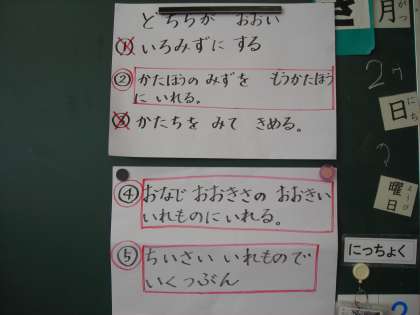 どちらが おおい
① いろみずに する
② かたほうの みずを もうかたほう
に いれる。
③ かたちを みて きめる。
④ おなじ おおきさの おおきい
いれものに いれる。
⑤ ちいさい いれもので
いくつぶん
月
がつ
27
日
にち
曜日
ようび
にっちょく